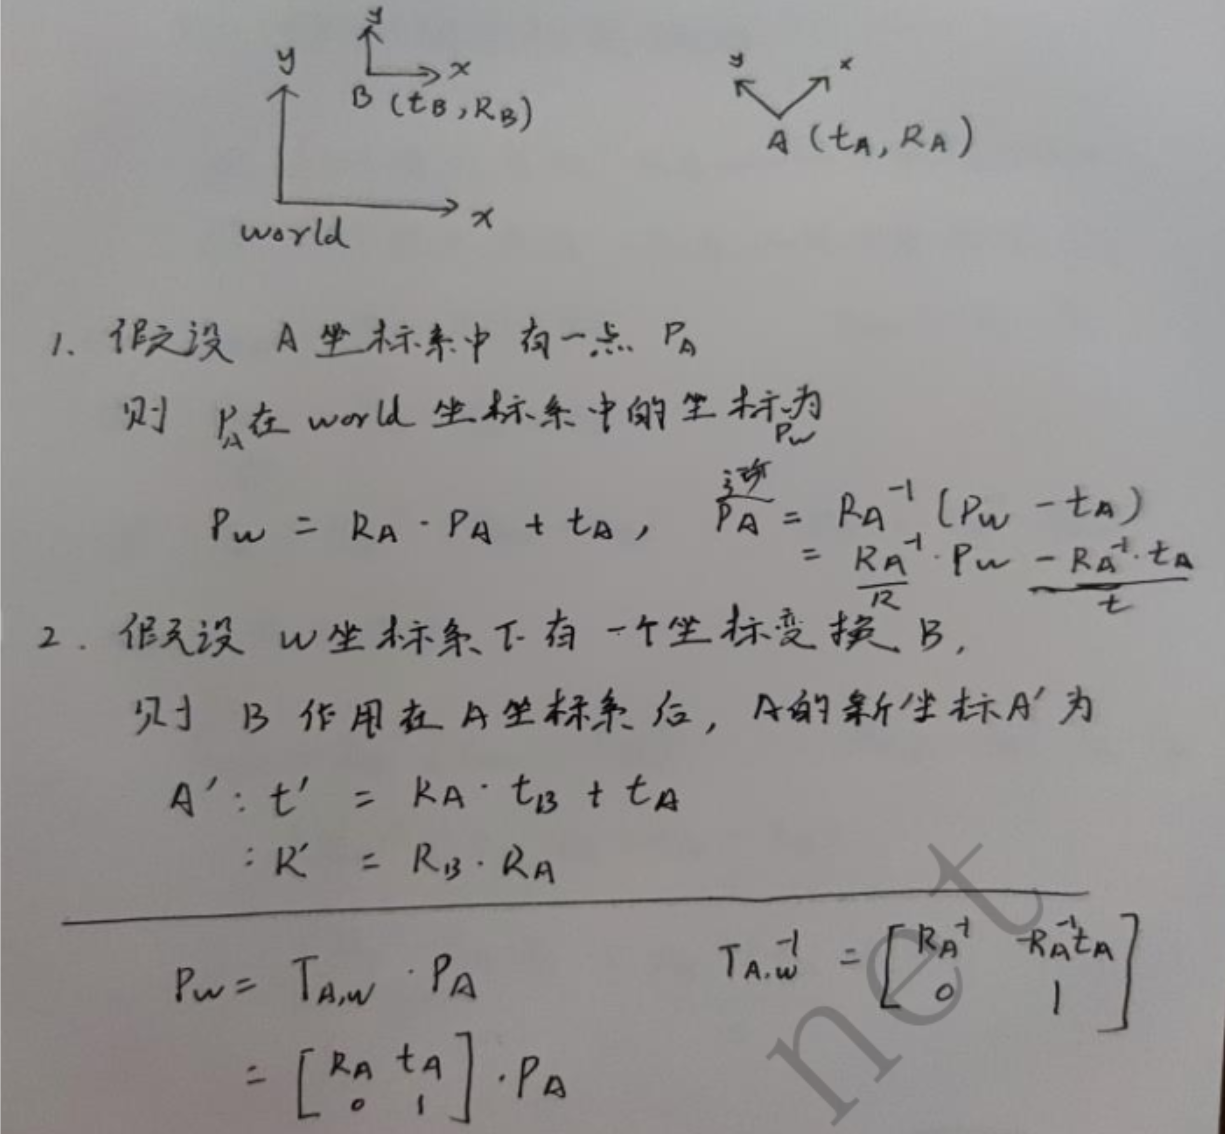 y
B (tB, RB)
x
y
x
world
y
x
A (tA, RA)
1. 假设 A 坐标系中有一点 PA
则 PA在 world 坐标系中的坐标为
Pw
Pw = RA · PA + tA, 逆 PA = RA⁻¹ (Pw - tA)
= RA⁻¹ · Pw - RA⁻¹ · tA
R t
2. 假设 W坐标系下有一个坐标变换 B,
则 B 作用在 A坐标系后, A的新坐标A' 为
A' : t' = RA · tB + tA
: R' = RB · RA
Pw = TA,w · PA
= [ RA tA
0 1 ] · PA
TA,w⁻¹ = [ RA⁻¹ -RA⁻¹tA
0 1 ]
net